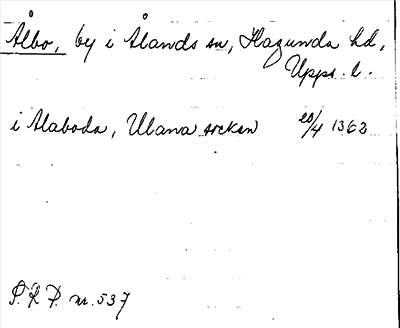 Ålbo, by i Ålands sn, Hagunda hd,
Upps. l.
i Alaboda, Ulana socken 20/4 1362
S. R. P. nr. 537